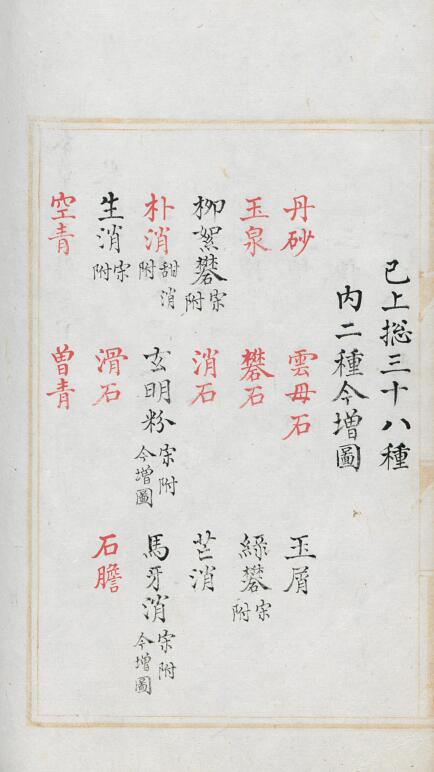 已上揔三十八種
內二種今增圖
丹砂 雲母石 玉屑
玉泉 礬石 綠礬宋附
柳絮礬宋附 消石 芒消
朴消甜消附 玄明粉宋附今增圖 馬牙消宋附今增圖
生消宋附 滑石 石膽
空青 曽青